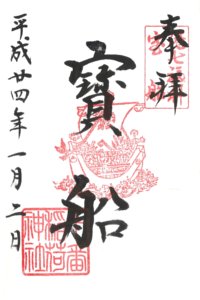 奉拝
寳船
平成廿四年一月二日